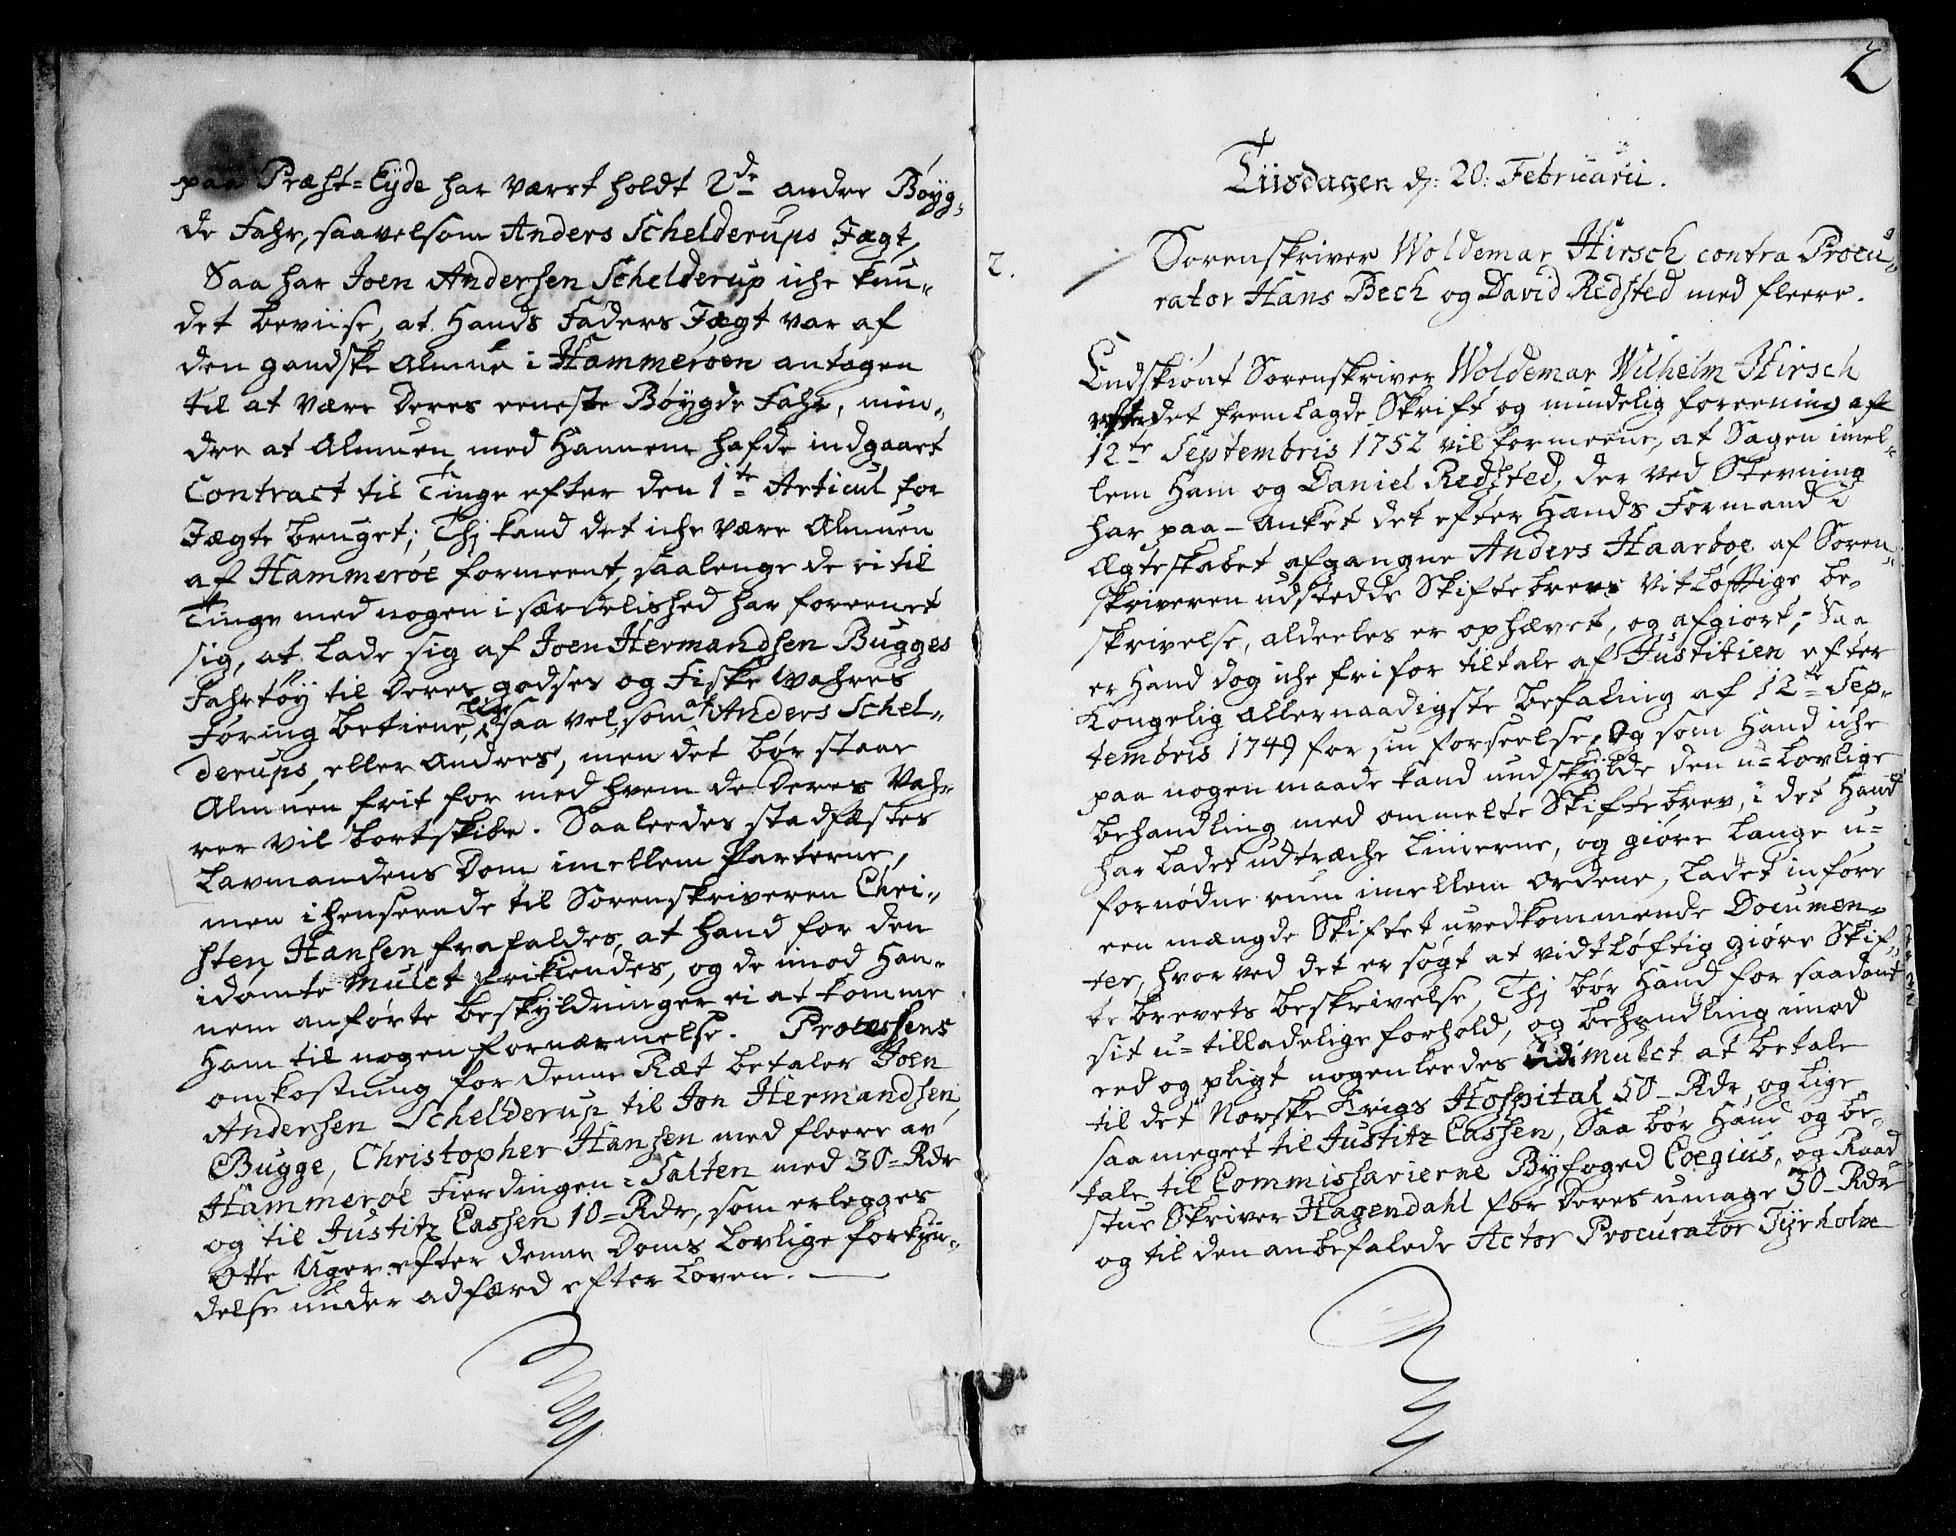 paa Præst=Eyde har været holdt 2de andre Böyg,,
de Fahr, saavelsom Anders Schelderups Jægt,
Saa har Joen Andersen Schelderup iche kun,,
det beviise, at Hands Faders Jægt var af
den gandske Almue i Hammeröen antagen
til at være Deres eeneste Böygde Fahr, min,,
dre at Almuen med Hannem hafde indgaaet
Contract til Tinge efter den 1te Articul for
Jægte bruget; Thj kand det iche være Almuen
af Hammeröe formeent, saalenge de ei til
Tinge med nogen i særdelished har foreenet
sig, at lade sig af Joen Hermandsen Bugges
Fahrtöy til Deres godses og Fiske Wahres
Föring betiene, lige saa vel, som af Anders Schel,,
derups, eller Andres, men det bör staae
Almuen frit for med hvem de Deres Vah,,
rer vil bortskibe. Saaleedes stadfæstes
Lavmandens Dom imellem Parterne,
men i henseende til Sorenskriveren Chri,,
sten Hansen, frafaldes, at hand for den
idömte Mulct frikiendes, og de imod Han,,
nem anförte beskyldninger ei at komme
Ham til nogen fornærmelse. Processens
omkostning for denne Ræt betaler Joen
Andersen Schelderup til Jon Hermandsen
Bugge, Christopher Hansen med fleere av
Hammeröe Fierdingen i Salten med 30=Rdr
og til Justitz Cassen 10=Rdr, som erlegges
Otte Uger efter denne Doms Lovlige forkyn,,
delse under adfærd efter Loven.
2
Tiisdagen d: 20: Februarii.
2.
Sorenskriver Woldemar Hirsch contra Procu,,
rator Hans Bech og David Redsted med fleere.
Endskiönt Sorenskriver Woldemar Wilhelm Hirsch
efter det fremlagde Skrift og mindelig foreening af
12te Septembris 1752 vil formeene, at Sagen imel,,
lem Ham og Daniel Redsted, der ved Stevning
har paa-anket det efter Hands Formand i
Ægteskabet afgangne Anders Haarboe af Soren,,
skriveren udstedde Skiftebrevs vitlöfftige be,,
skrivelse, aldeeles er ophævet, og afgiort; Saa
er Hand dog iche fri for tiltale af Justitien efter
Kongelig Allernaadigste befaling af 12te Sep,,
tembris 1749 for sin forseelse, Og som Hand iche
paa nogen maade kand undskylde den u=lovlige
behandling med ommelte Skiftebrev, i det Hand
har ladet udtræche Linierne, og giöre lange u=
fornödne rum imellem ordene, ladet införe
een mængde Skiftet uvedkommende Documen,,
ter, hvorved det er sögt at vidtlöftig giöre Skif,,
te brevets beskrivelse, Thj bör Hand for saadant
sit u=tilladelige forhold, og behandling imod
eed og pligt nogenleedes udi mulct at betale
til det Norske Krigs Hospital 50-Rdr, og lige
saa meget til Justitz Cassen, Saa bör Hand og be,,
tale til Commissarierne Byfoged Coegius, og Raad,,
stue Skriver Hagendahl for Deres umage 30-Rdr
og til den anbefalede Actor Procurator Tyrholm